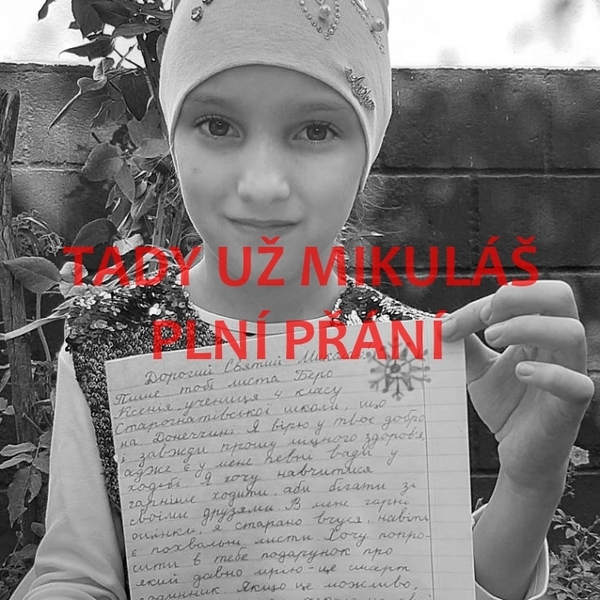 TADY UŽ MIKULÁŠ
PLNÍ PŘÁNÍ
Дорогий Святий Микола
Пише тобі листа Беро
Ксенія, учениця 4 класу
Старогнатівської школи, що
на Донеччині. Я вірю у твоє добро
і завжди прошу міцного здоров'я
адже є у мене певні вади у
ходьбі. Я хочу навчитися
гарніше ходити, аби бігати зі
своїми друзями. В мене гарні
оцінки, я старано вчуся, навіть
є похвальні листи. Хочу попро-
сити в тебе подарунок про
який давно мрію - це смарт
годинник. Якщо це можливо,